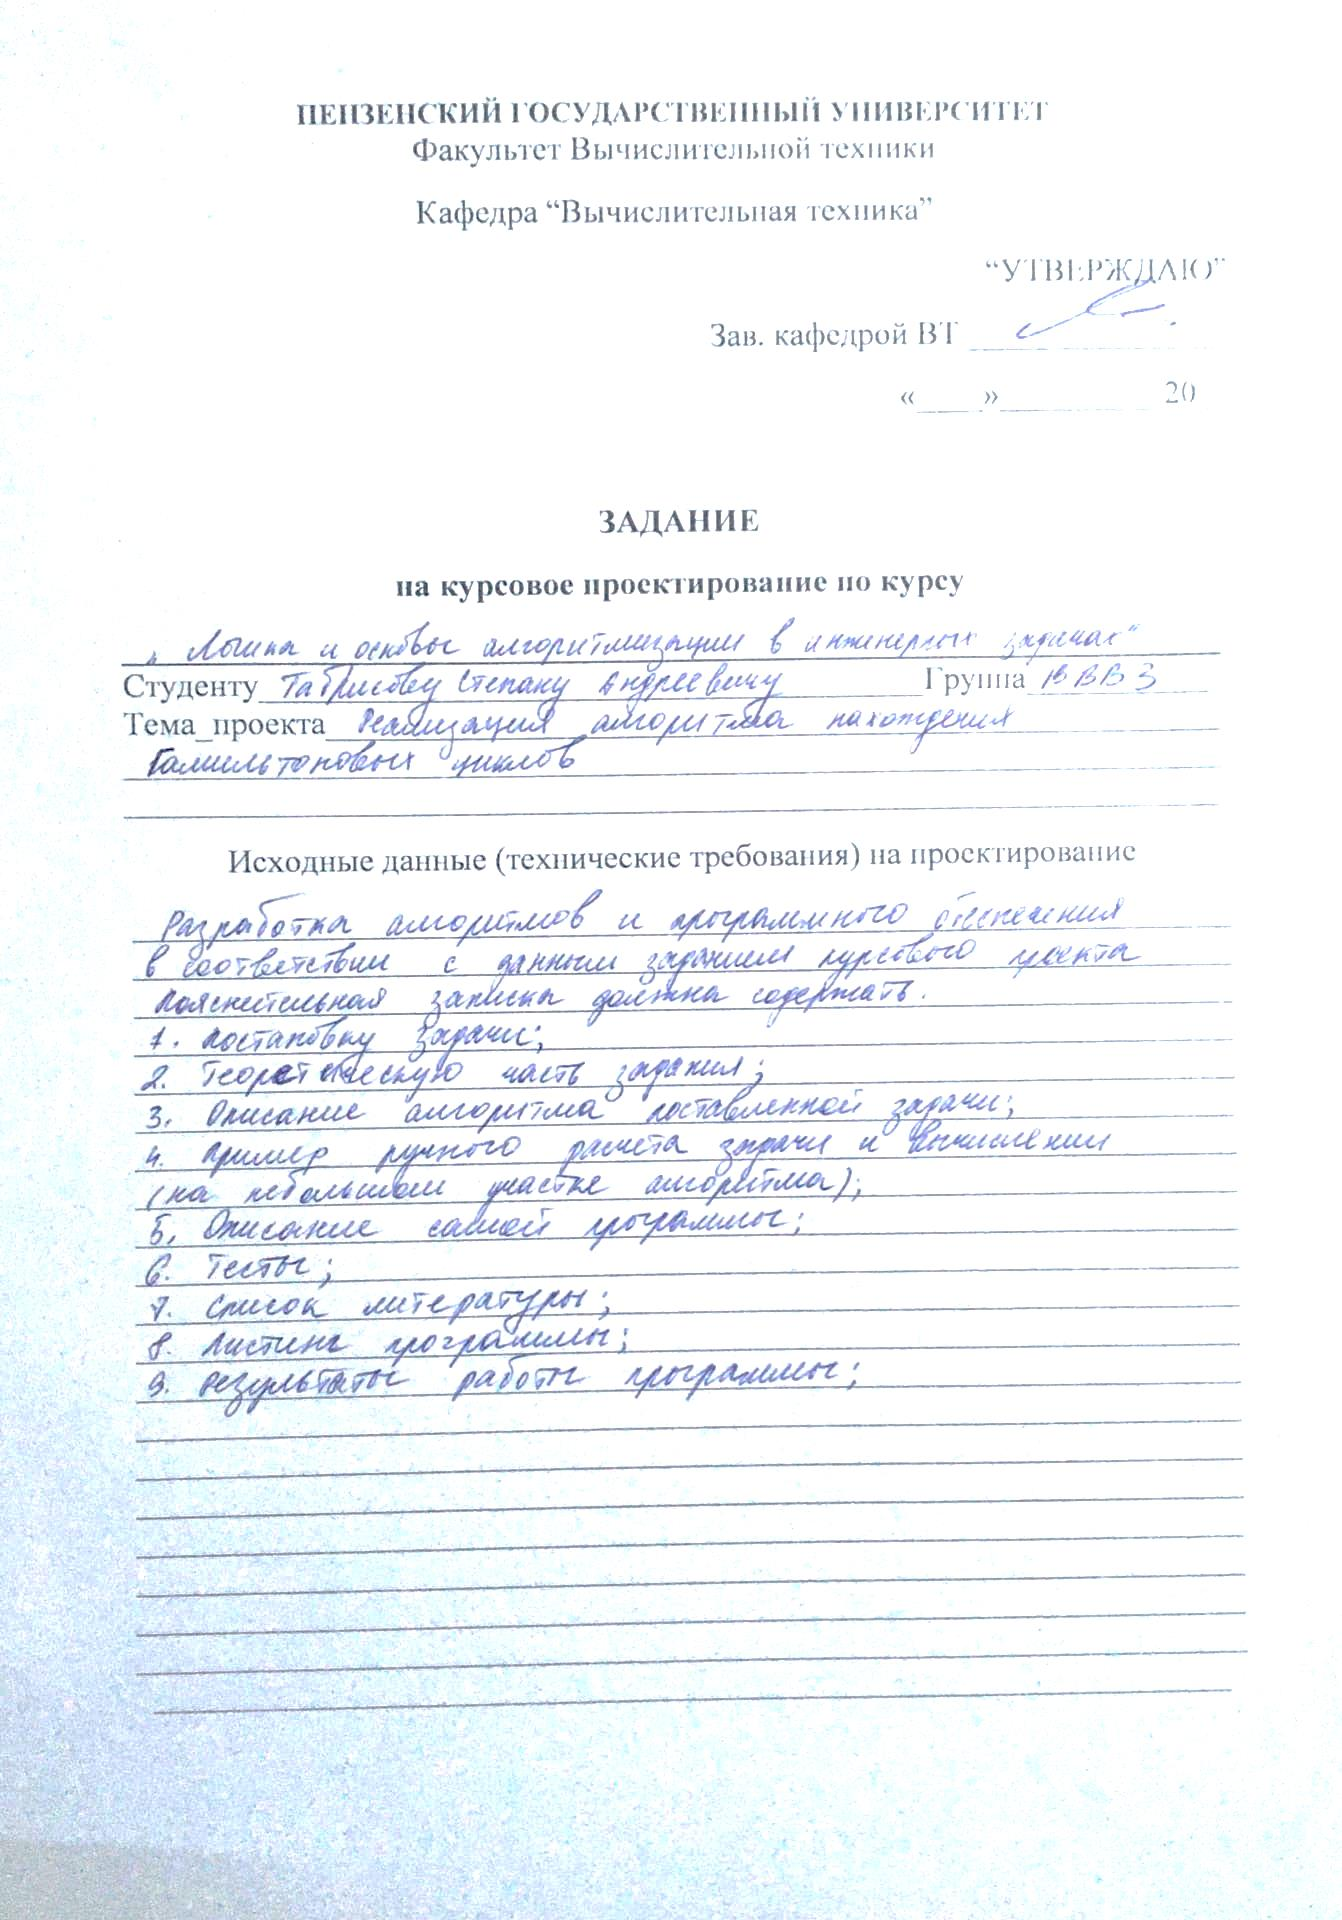 ПЕНЗЕНСКИЙ ГОСУДАРСТВЕННЫЙ УНИВЕРСИТЕТ
Факультет Вычислительной техники
Кафедра “Вычислительная техника”
“УТВЕРЖДАЮ”
Зав. кафедрой ВТ
«____»__________ 20
ЗАДАНИЕ
на курсовое проектирование по курсу
„ Логика и основы алгоритмизации в инженерных задачах“
Студенту Степану Андреевичу Группа
Тема_проекта Реализация алгоритма нахождения
Гамильтоновых циклов
Исходные данные (технические требования) на проектирование
Разработка алгоритмов и программного обеспечения
в соответствии с данным заданием курсового проекта
Пояснительная записка должна содержать.
1. Постановку задачи;
2. Теоретическую часть задания;
3. Описание алгоритма поставленной задачи;
4. Пример ручного расчета задачи и вычислений
(на небольшом участке алгоритма);
5. Описание самой программы;
6. Тесты;
7. Список литературы;
8. Листинг программы;
9. Результаты работы программы;